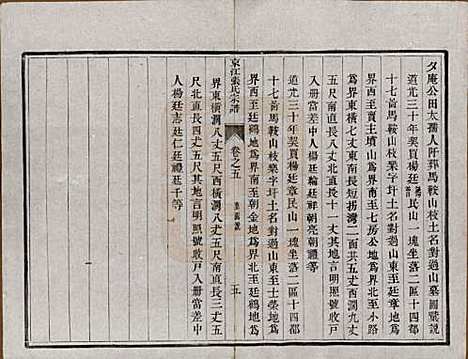 夕庵公田太孺人阡葬馬鞍山枝土名對過山墓圖號說
道光三十年契買楊廷章民山一塊坐落二區十四都
十七啚馬鞍山枝樂字圩土名對過山東至廷章地爲
界西至賣主墳山爲界南至七房公地爲界北至小路
爲界東橫七丈東南長短拐灣二面共五丈西濶九丈
五尺南直八丈八尺北直十一丈其地言明照號收戶
入册當差中人楊廷輪廷祥朝亮朝禮等
道光三十年契買楊廷章民山一塊坐落二區十四都
十七啚馬鞍山枝樂字圩土名對過山東至士榮地爲
界西至廷鶴地爲界南至朝金地爲界北至廷鶴地爲
京江張氏宗譜
卷之五
五
界東橫濶八丈五尺西橫濶八丈五尺南直長四丈五
尺北直長四丈五尺其地言明照號收戶入册當差中
人楊廷志廷千等